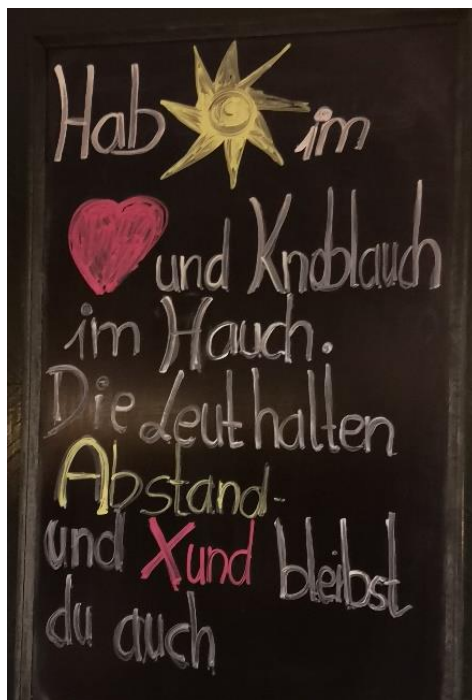 Hab im
und Knoblauch
im Hauch.
Die Leut halten
Abstand-
und Xund bleibst
du auch